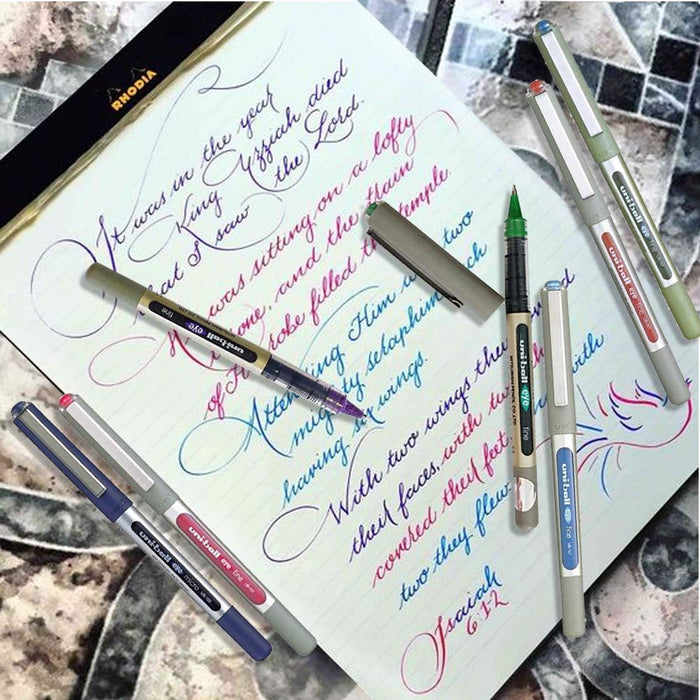 RHODIA
It was in the year
King Uzziah died
that I saw the Lord.
He was sitting on a lofty
throne, and the train
of His robe filled the temple.
Attending Him were two
mighty seraphim, each
having six wings.
With two wings they covered
their faces, with two they
covered their feet, with
two they flew.
Isaiah
6:1-2
uni-ball eye fine
uni-ball eye fine
uni-ball eye fine
uni-ball eye
uni-ball eye fine
MITSUBISHI PENCIL CO. LTD.
uni-ball eye fine
uni-ball eye micro
uni-ball eye fine